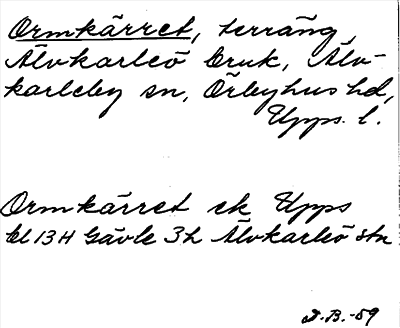 Ormkärret, terräng,
Älvkarleö bruk, Älv-
karleby sn, Örbyhus hd,
Upps. l.
Ormkärret ek Upps
bl 13H Gävle 3h Älvkarleö stn
J.B.-59